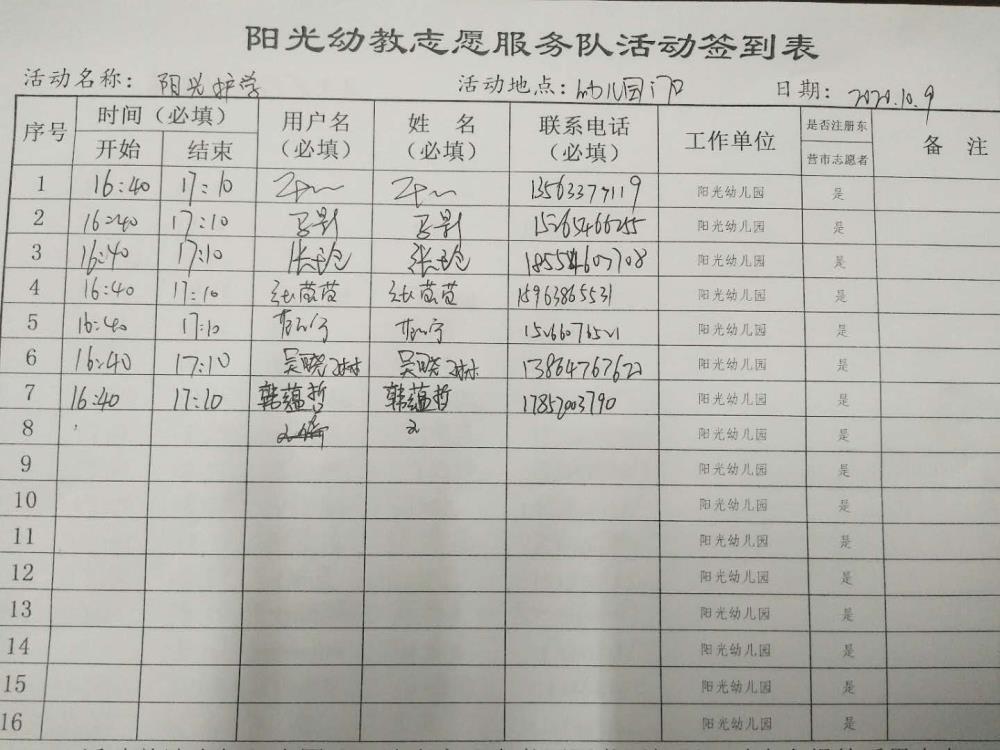 阳光幼教志愿服务队活动签到表
活动名称: 阳光护学 活动地点: 幼儿园门口 日期: 2020.10.9
序号 时间（必填） 用户名（必填） 姓 名（必填） 联系电话（必填） 工作单位 是否注册东营市志愿者 备 注
开始 结束
1 16:40 17:10 13563377119 阳光幼儿园 是
2 16:40 17:10 15265466255 阳光幼儿园 是
3 16:40 17:10 18554607708 阳光幼儿园 是
4 16:40 17:10 15963865531 阳光幼儿园 是
5 16:40 17:10 15266076521 阳光幼儿园 是
6 16:40 17:10 吴晓琳 吴晓琳 13864767622 阳光幼儿园 是
7 16:40 17:10 韩蕴哲 韩蕴哲 17852003790 阳光幼儿园 是
8 阳光幼儿园 是
9 阳光幼儿园 是
10 阳光幼儿园 是
11 阳光幼儿园 是
12 阳光幼儿园 是
13 阳光幼儿园 是
14 阳光幼儿园 是
15 阳光幼儿园 是
16 阳光幼儿园 是